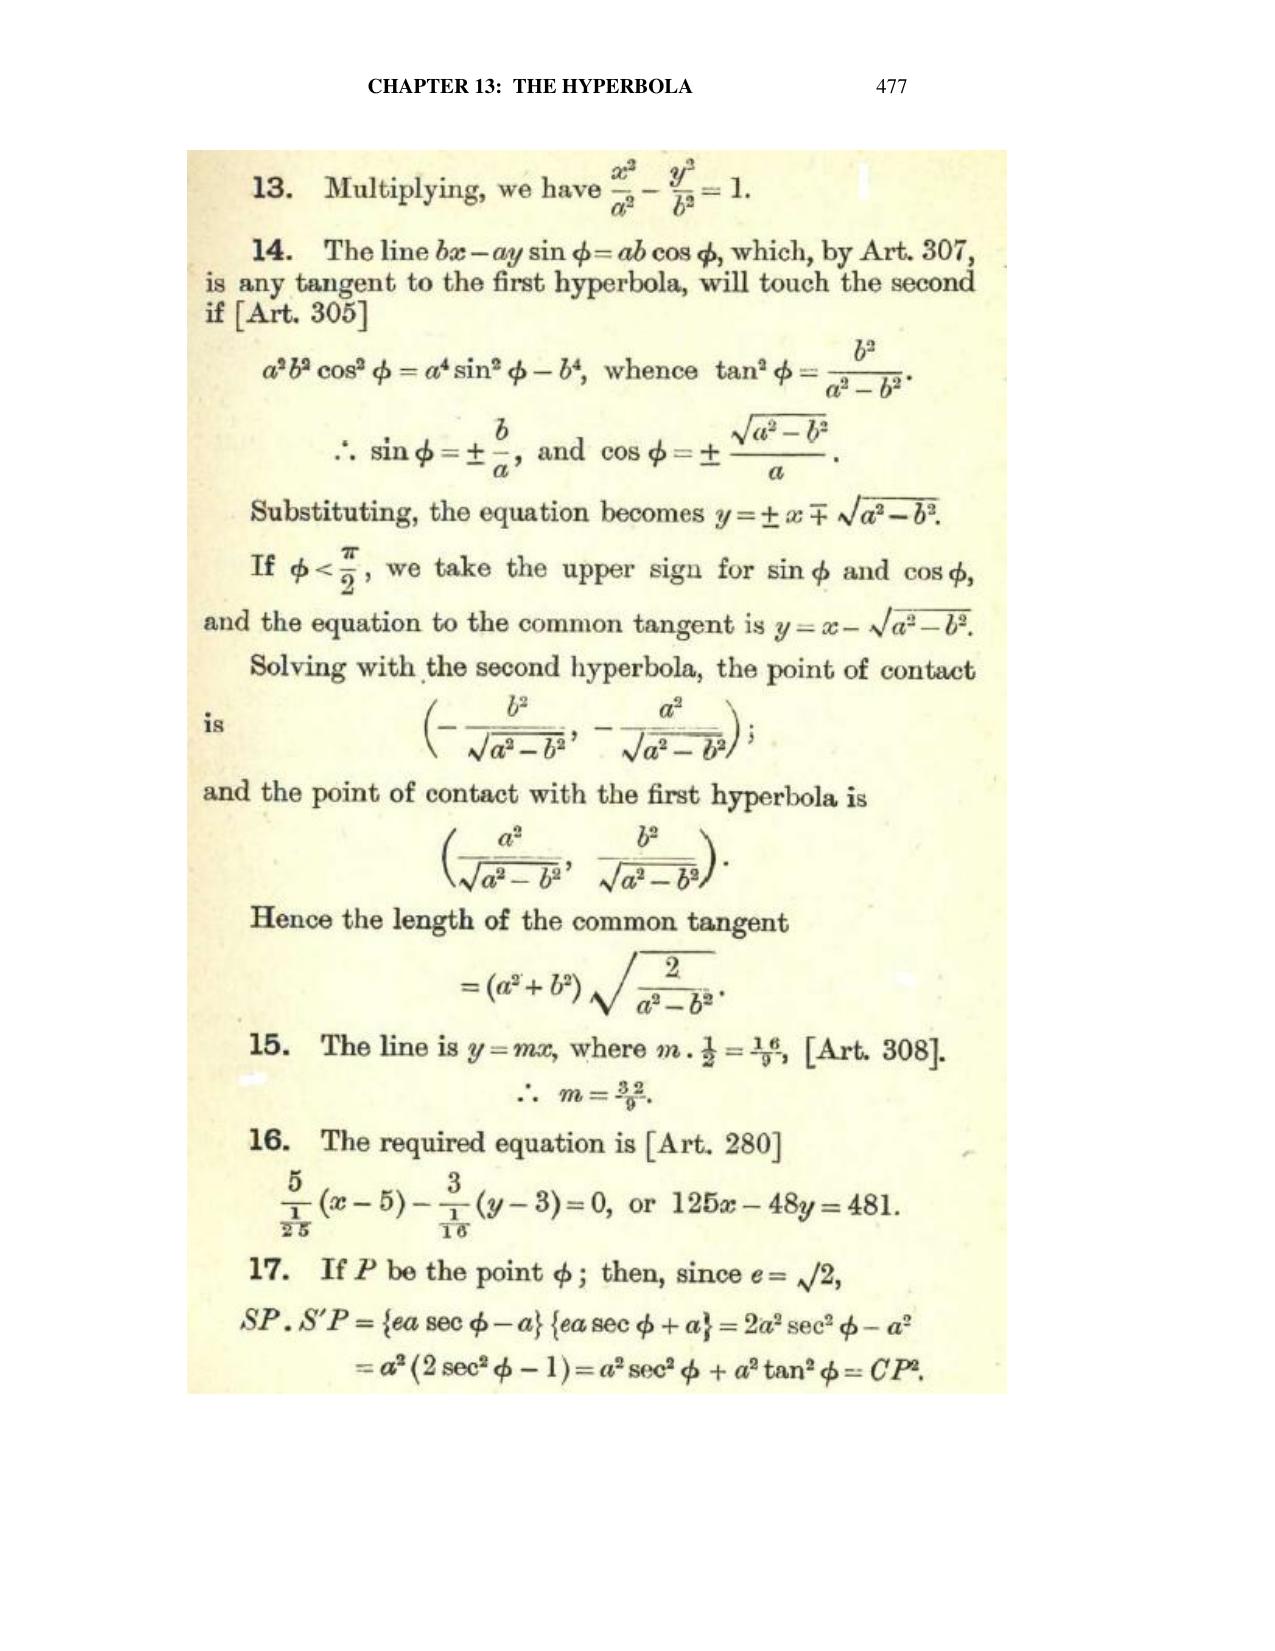 CHAPTER 13: THE HYPERBOLA 477
13. Multiplying, we have x²/a² − y²/b² = 1.
14. The line bx − ay sin ϕ = ab cos ϕ, which, by Art. 307,
is any tangent to the first hyperbola, will touch the second
if [Art. 305]
a²b² cos² ϕ = a⁴ sin² ϕ − b⁴, whence tan² ϕ = b²/(a² − b²).
∴ sin ϕ = ± b/a, and cos ϕ = ± √(a² − b²)/a.
Substituting, the equation becomes y = ± x ∓ √(a² − b²).
If ϕ < π/2, we take the upper sign for sin ϕ and cos ϕ,
and the equation to the common tangent is y = x − √(a² − b²).
Solving with the second hyperbola, the point of contact
is (− b²/√(a² − b²), − a²/√(a² − b²));
and the point of contact with the first hyperbola is
(a²/√(a² − b²), b²/√(a² − b²)).
Hence the length of the common tangent
= (a² + b²) √(2/(a² − b²)).
15. The line is y = mx, where m . 1/2 = 16/9, [Art. 308].
∴ m = 32/9.
16. The required equation is [Art. 280]
5/(1/25) (x − 5) − 3/(1/16) (y − 3) = 0, or 125x − 48y = 481.
17. If P be the point ϕ; then, since e = √2,
SP . S′P = {ea sec ϕ − a} {ea sec ϕ + a} = 2a² sec² ϕ − a²
= a² (2 sec² ϕ − 1) = a² sec² ϕ + a² tan² ϕ = CP².